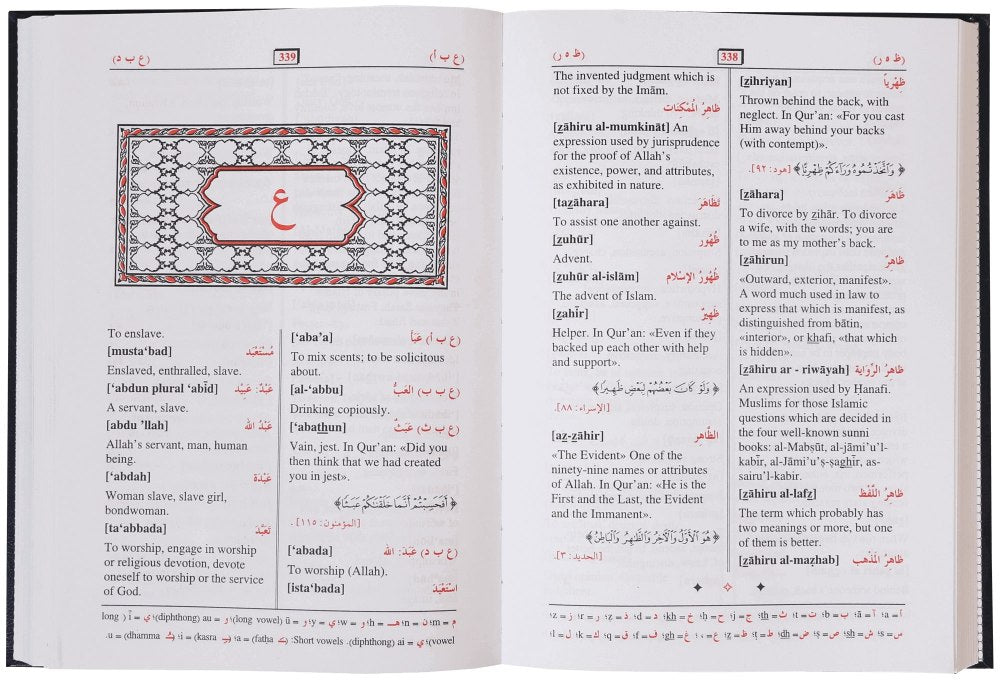 (ظ ه ر) 338 (ظ ه ر)
[zihriyan] ظِهْرِياً
Thrown behind the back, with
neglect. In Qur'an: «For you cast
Him away behind your backs
(with contempt)».
﴿ وَٱتَّخَذْتُمُوهُ وَرَآءَكُمْ ظِهْرِيًّا﴾ [هود: ٩٢].
[zāhara] ظَاهَرَ
To divorce by zihār. To divorce
a wife, with the words; you are
to me as my mother's back.
[zāhirun] ظاهِرٌ
«Outward, exterior, manifest».
A word much used in law to
express that which is manifest, as
distinguished from bātin,
«interior», or khafi, «that which
is hidden».
[zāhiru ar - riwāyah] ظاهِرُ الرِّوَاية
An expression used by Ḥanafi.
Muslims for those Islamic
questions which are decided in
the four well-known sunni
books: al-Mabṣūt, al-jāmi'u'l-
kabīr, al-Jāmi'u'ṣ-ṣaghīr, as-
sairu'l-kabir.
[zāhiru al-lafz] ظاهِرُ اللَّفْظ
The term which probably has
two meanings or more, but one
of them is better.
[zāhiru al-mazhab] ظاهِرُ المَذْهَب
The invented judgment which is
not fixed by the Imām.
ظاهِرُ المُمْكِنَات
[zāhiru al-mumkināt] An
expression used by jurisprudence
for the proof of Allah's
existence, power, and attributes,
as exhibited in nature.
[tazāhara] تَظَاهَرَ
To assist one another against.
[zuhūr] ظُهُور
Advent.
[zuhūr al-islām] ظُهُورُ الإسْلام
The advent of Islam.
[zahīr] ظَهِيرٌ
Helper. In Qur'an: «Even if they
backed up each other with help
and support».
﴿ وَلَوْ كَانَ بَعْضُهُمْ لِبَعْضٍ ظَهِيرًا﴾
[الإسراء: ٨٨].
[az-zāhir] الظَّاهِر
«The Evident» One of the
ninety-nine names or attributes
of Allah. In Qur'an: «He is the
First and the Last, the Evident
and the Immanent».
﴿ هُوَ ٱلْأَوَّلُ وَٱلْآخِرُ وَٱلظَّٰهِرُ وَٱلْبَاطِنُ﴾
[الحديد: ٣].
أ = a؛ آ = ā؛ ب = b؛ ت = t؛ ث = th؛ ج = j؛ ح = ḥ؛ خ = kh؛ د = d؛ ذ = z؛ ر = r؛ ز = z؛
س = s؛ ش = sh؛ ص = ṣ؛ ض = dh؛ ط = ṭ؛ ظ = z؛ ع = ‘؛ غ = gh؛ ف = f؛ ق = q؛ ك = k؛ ل = l؛
(ع ب أ) 339 (ع ب د)
ع
[‘aba’a] (ع ب أ) عَبَأَ
To mix scents; to be solicitous
about.
[al-‘abbu] (ع ب ب) العَبُّ
Drinking copiously.
[‘abathun] (ع ب ث) عَبَثٌ
Vain, jest. In Qur'an: «Did you
then think that we had created
you in jest».
﴿ أَفَحَسِبْتُمْ أَنَّمَا خَلَقْنَٰكُمْ عَبَثًا﴾
[المؤمنون: ١١٥].
[‘abada] (ع ب د) عَبَدَ: الله
To worship (Allah).
[ista‘bada] اسْتَعْبَدَ
To enslave.
[musta‘bad] مُسْتَعْبَد
Enslaved, enthralled, slave.
[‘abdun plural ‘abīd] عَبْدٌ: عَبِيْد
A servant, slave.
[abdu ’llah] عَبْدُ الله
Allah's servant, man, human
being.
[‘abdah] عَبْدَة
Woman slave, slave girl,
bondwoman.
[ta‘abbada] تَعَبَّدَ
To worship, engage in worship
or religious devotion, devote
oneself to worship or the service
of God.
م = m؛ ن = n؛ هـ = h؛ و = w؛ ي = y؛ و = ū (long vowel)؛ و = au (diphthong)؛ ي = ī (long
vowel)؛ ي = ai (diphthong). Short vowels: a = (fatḥa)؛ i = (kasra)؛ u = (dhamma).